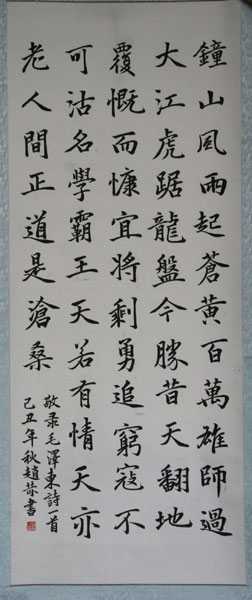 鐘山風雨起蒼黃百萬雄師過
大江虎踞龍盤今勝昔天翻地
覆慨而慷宜將剩勇追窮寇不
可沽名學霸王天若有情天亦
老人間正道是滄桑
敬录毛澤東詩一首
己丑年秋趙書